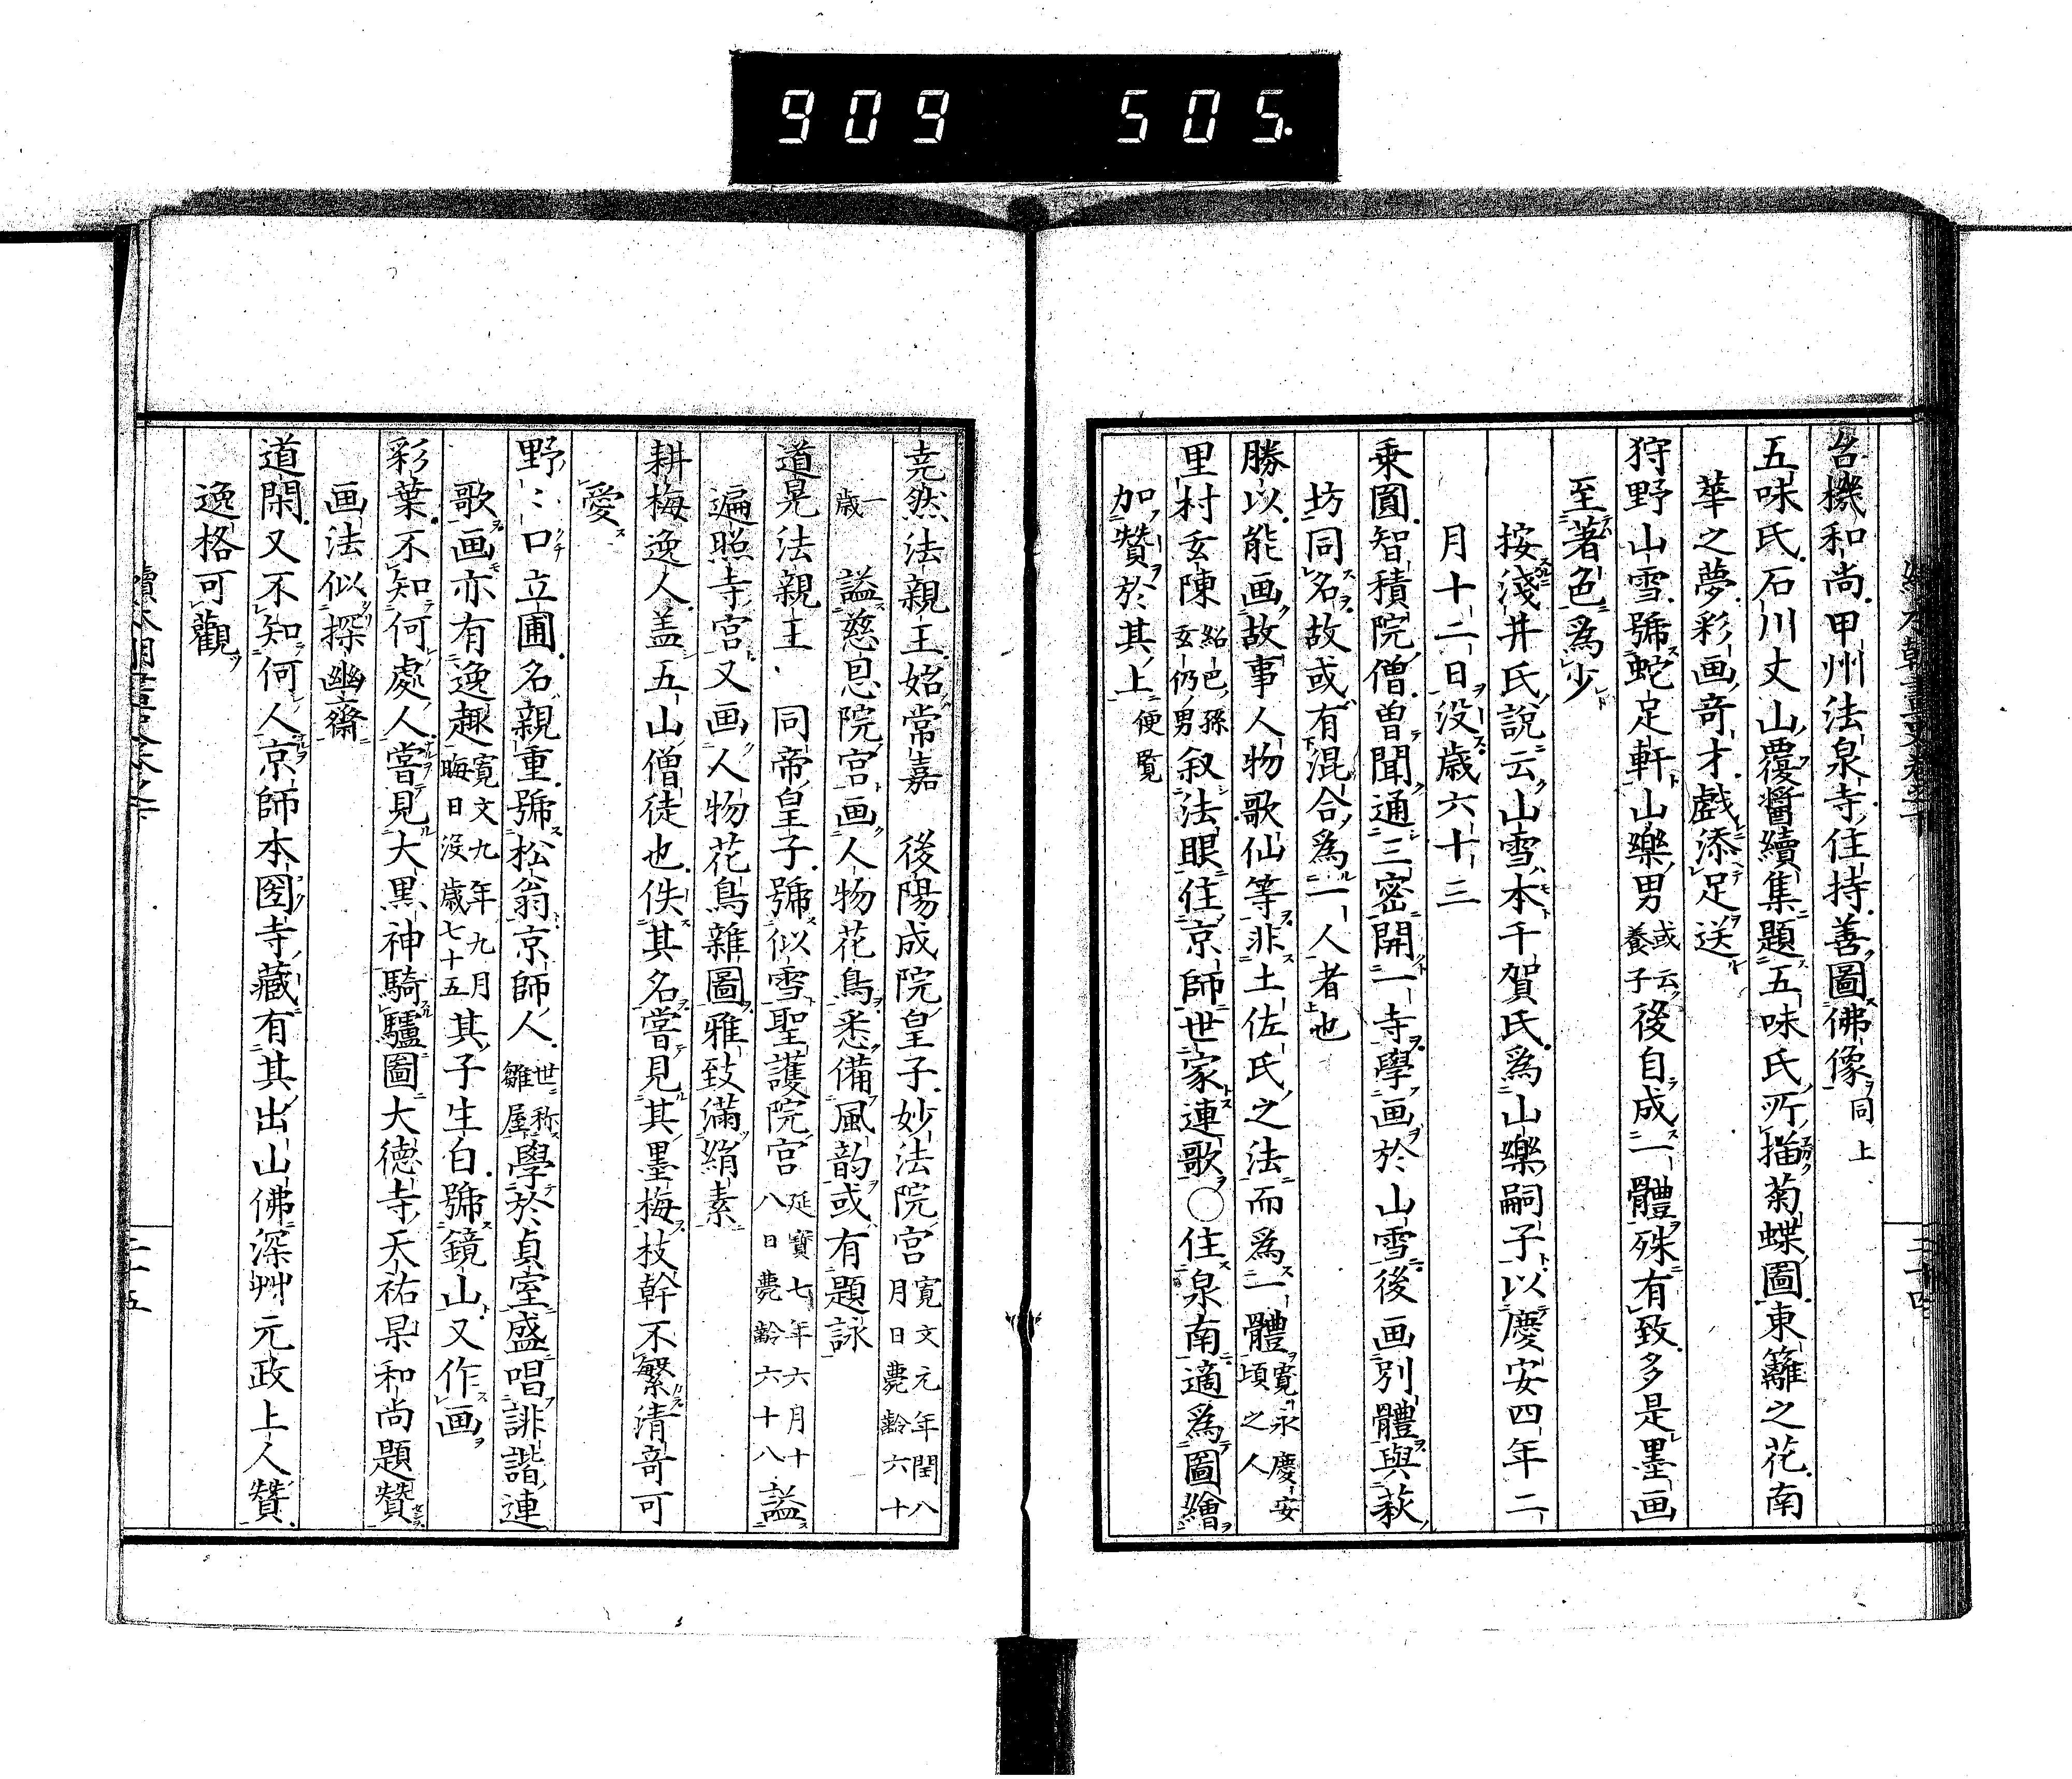 909 505.
呂機和尚甲州法泉寺住持善圖佛像同上
五味氏石川丈山覆醬續集題五味氏所描菊蝶圖東籬之花南
華之夢彩画竒才戲添足送
狩野山雪號蛇足軒山樂男或云養子後自成一體殊有致多是墨画
至著色為少
按淺井氏說云山雪本千賀氏為山樂嗣子以慶安四年二
月十二日没歳六十三
乗圓智積院僧曽聞通三密開一寺學画於山雪後画別體與萩
坊同名故或有混合為一人者也
勝以能画故事人物歌仙等非土佐氏之法而為一體寛永慶安頃之人
里村玄陳紹巴孫玄仍男叙法眼住京師世家連歌〇住泉南適為圖繪
加賛於其上便覧
尭然法親王始常嘉 後陽成院皇子妙法院宮寛文元年閏八月日薨齢六十
一歳 謚慈恩院宮画人物花鳥悉備風韵或有題詠
道晃法親王 同帝皇子號似雪聖護院宮延寶七年六月十八日薨齢六十八謚
遍照寺宮又画人物花鳥雜圖雅致滿絹素
耕梅逸人盖五山僧徒也佚其名嘗見其墨梅枝幹不繁清竒可
愛
野〻口立圃名親重號松翁京師人世称雛屋學於貞室盛唱誹諧連
歌画亦有逸趣寛文九年九月晦日没歳七十五其子生白號鏡山又作画
彩葉不知何處人嘗見大黒神騎驢圖大徳寺天祐杲和尚題賛
画法似探幽齋
道閑又不知何人京師本圀寺藏有其出山佛深艸元政上人賛
逸格可觀